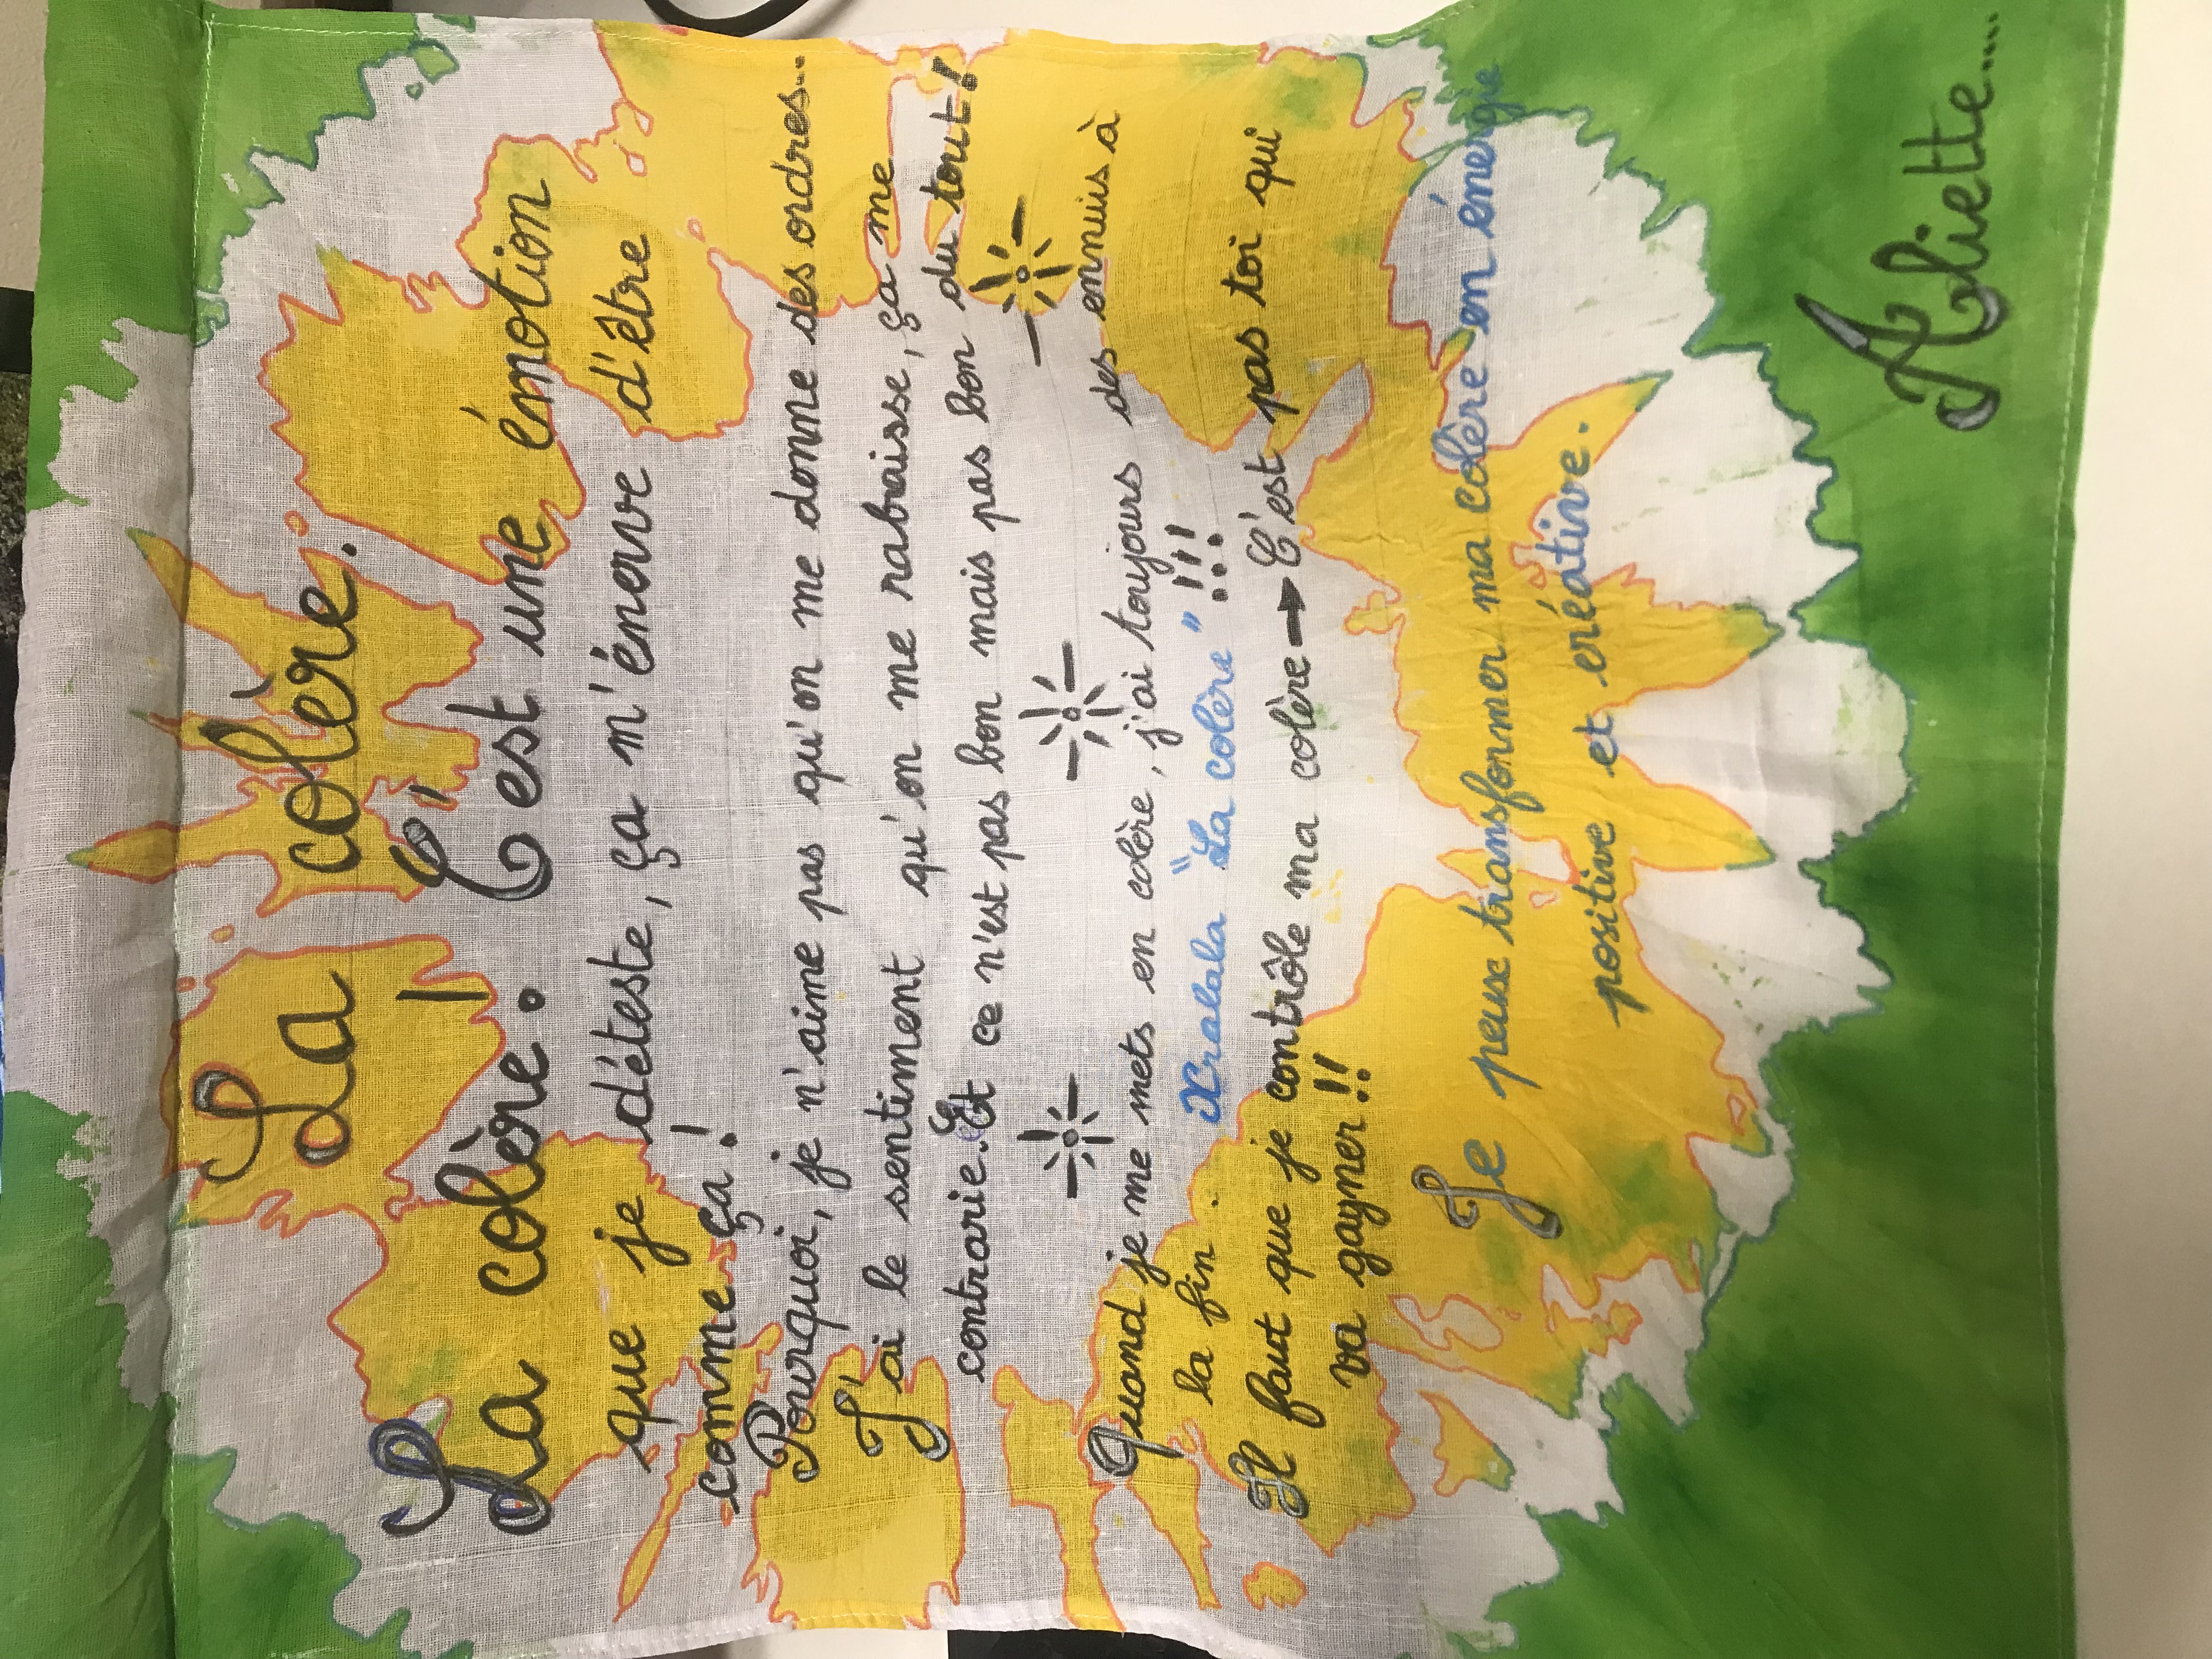 La colère.
La colère! C'est une émotion
que je déteste, ça m'énerve d'être
comme ça!
Pourquoi, je n'aime pas qu'on me donne des ordres...
J'ai le sentiment qu'on me rabaisse, ça me
contrarie. Et ce n'est pas bon mais pas bon du tout!
Quand je me mets en colère, j'ai toujours des ennuis à
la fin. Xralala "La colère" !!!
Il faut que je contrôle ma colère → C'est pas toi qui
va gagner!!
Je peux transformer ma colère en énergie
positive et créative.
Aliette...